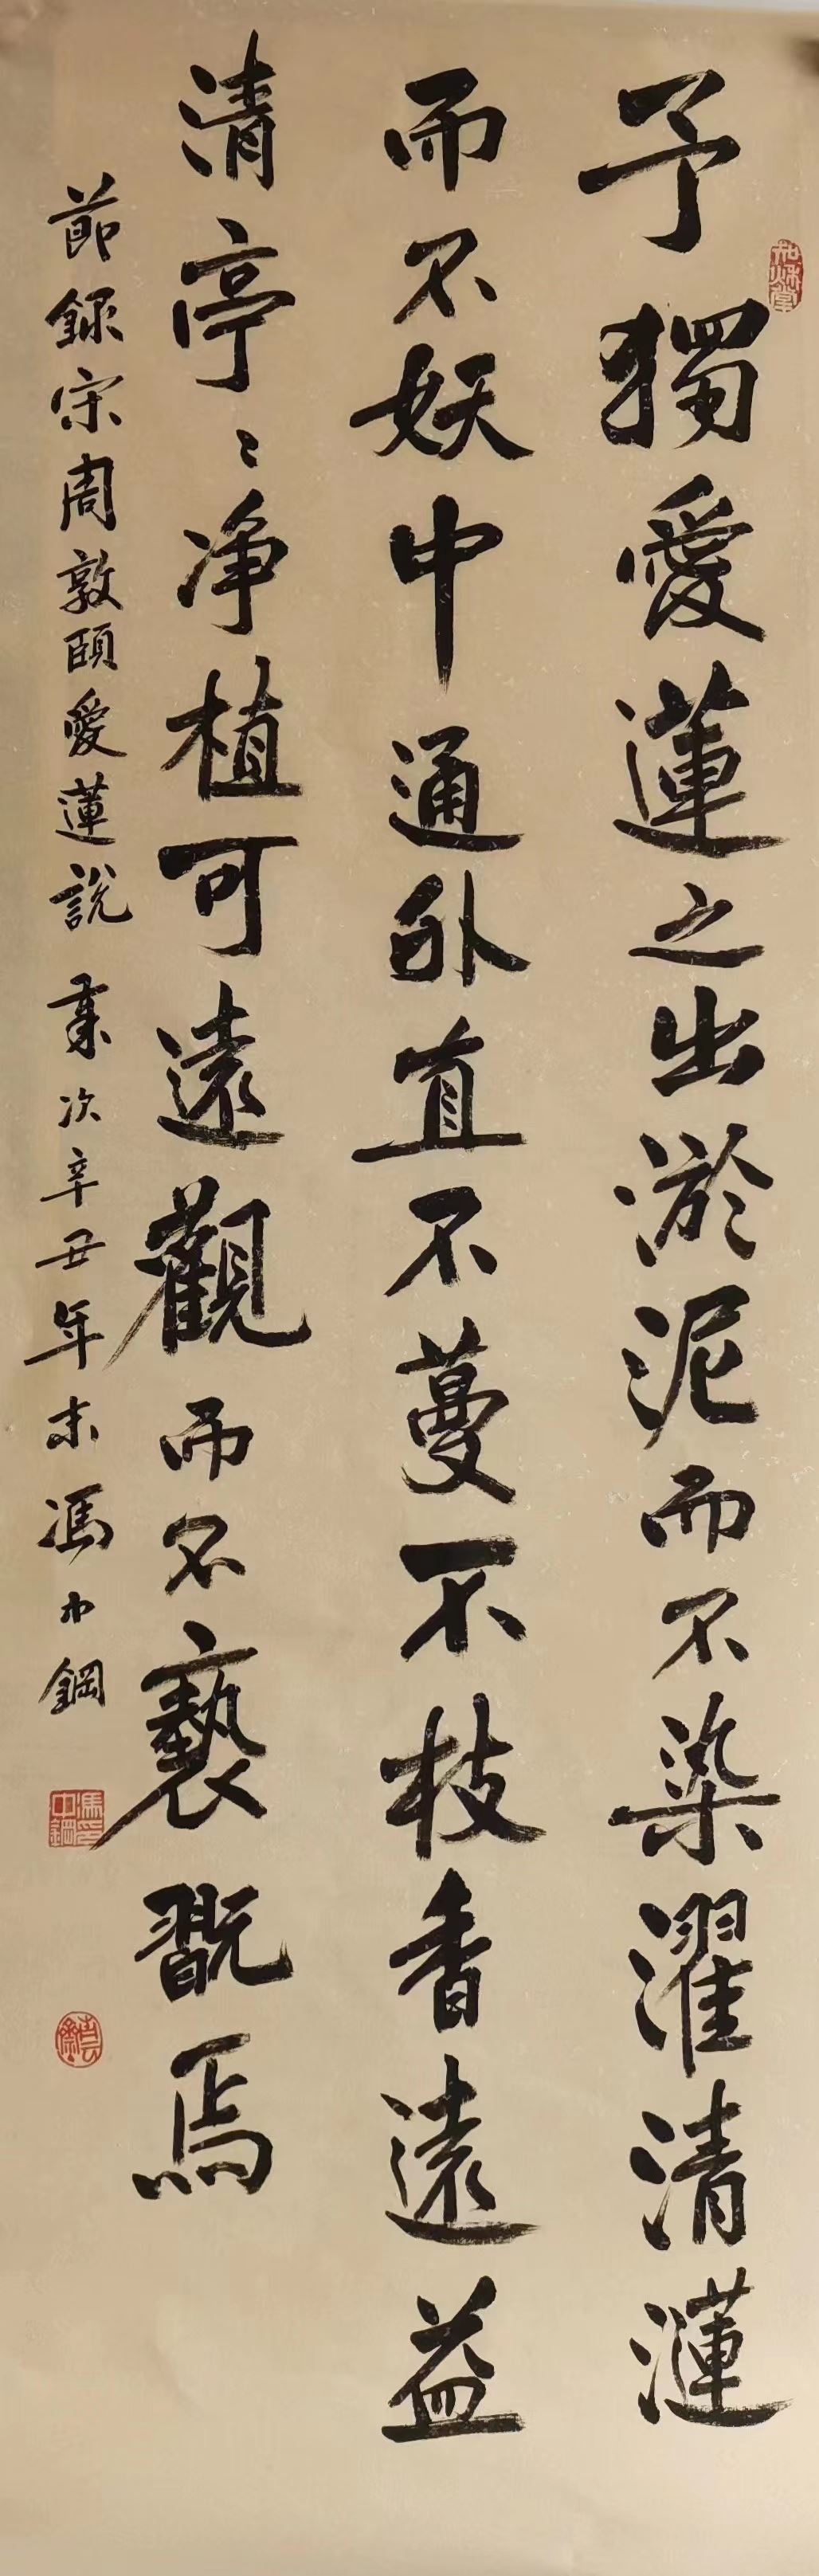 予獨愛蓮之出淤泥而不染濯清漣
而不妖中通外直不蔓不枝香遠益
清亭〻净植可遠觀而不褻翫焉
節録宋周敦頤愛蓮說 歲次辛丑年末馮中鋼
馮印中鋼